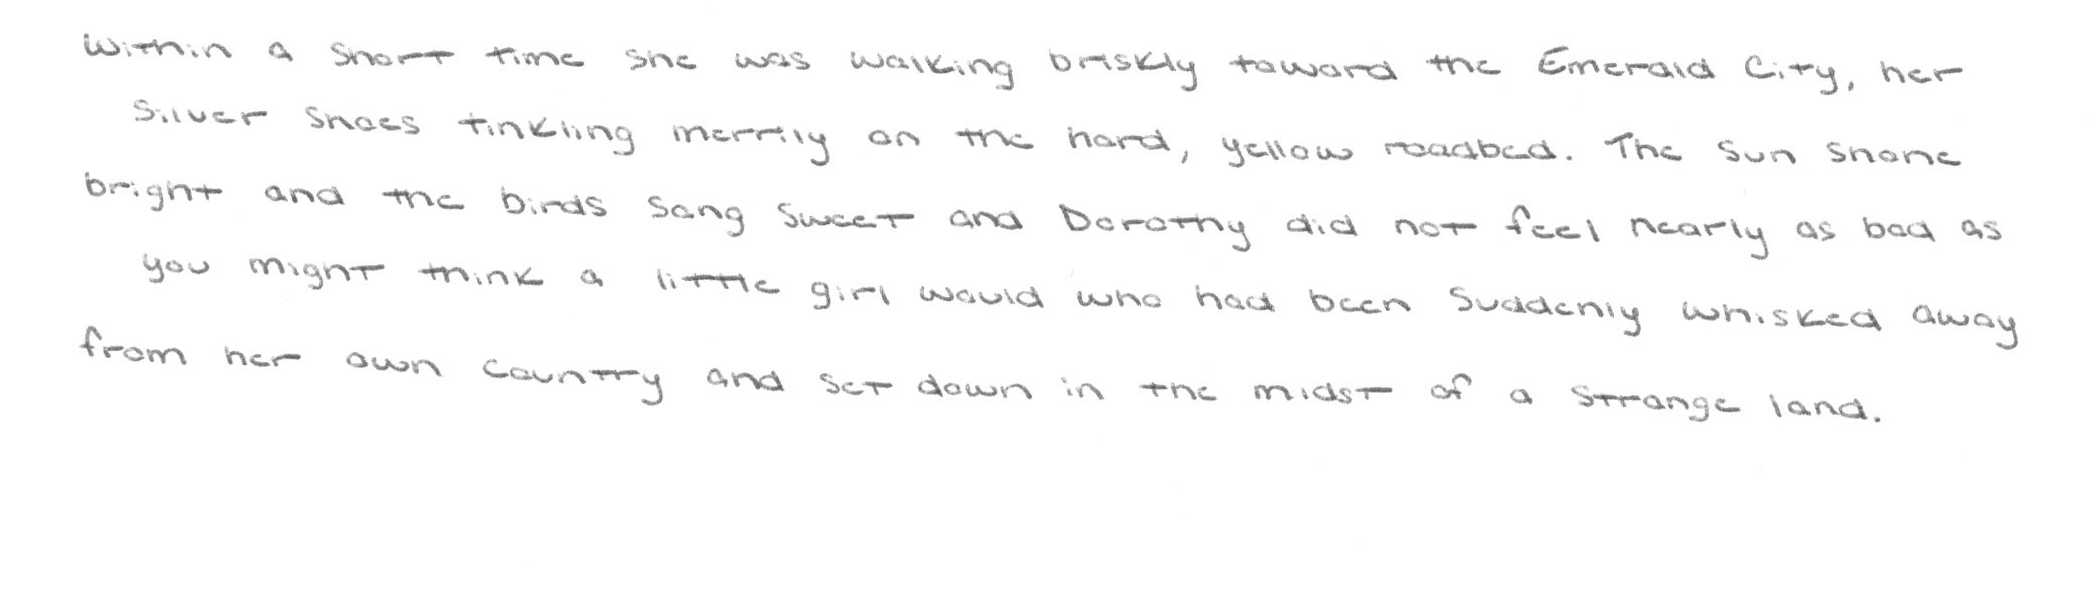 Within a short time she was walking briskly toward the Emerald City, her
Silver Shoes tinkling merrily on the hard, yellow roadbed. The sun shone
bright and the birds sang sweet and Dorothy did not feel nearly as bad as
you might think a little girl would who had been suddenly whisked away
from her own country and set down in the midst of a strange land.